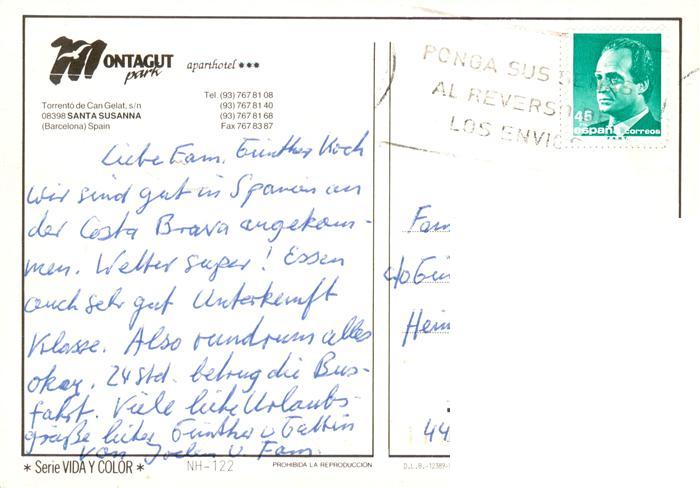 MONTAGUT
park
aparthotel ★★★
Torrentó de Can Gelat, s/n
08398 SANTA SUSANNA
(Barcelona) Spain
Tel. (93) 767 81 08
(93) 767 81 40
(93) 767 81 68
Fax 767 83 87
Liebe Fam. Günther Koch
wir sind gut in Spanien an
der Costa Brava angekom-
men. Wetter super! Essen
auch sehr gut Unterkunft
Klasse. Also rundrum alles
okay. 24 Std. betrug die Bus-
fahrt. Viele liebe Urlaubs-
grüße lieber Günther u Gattin
von Jochen u. Fam.
* Serie VIDA Y COLOR *
NH-122
PROHIBIDA LA REPRODUCCIÓN
PONGA SUS SE
AL REVERSO
LOS ENVIO
45
PTA
españa correos
Fam
c/o Gün
Hein
44
D.L.B.-12389-